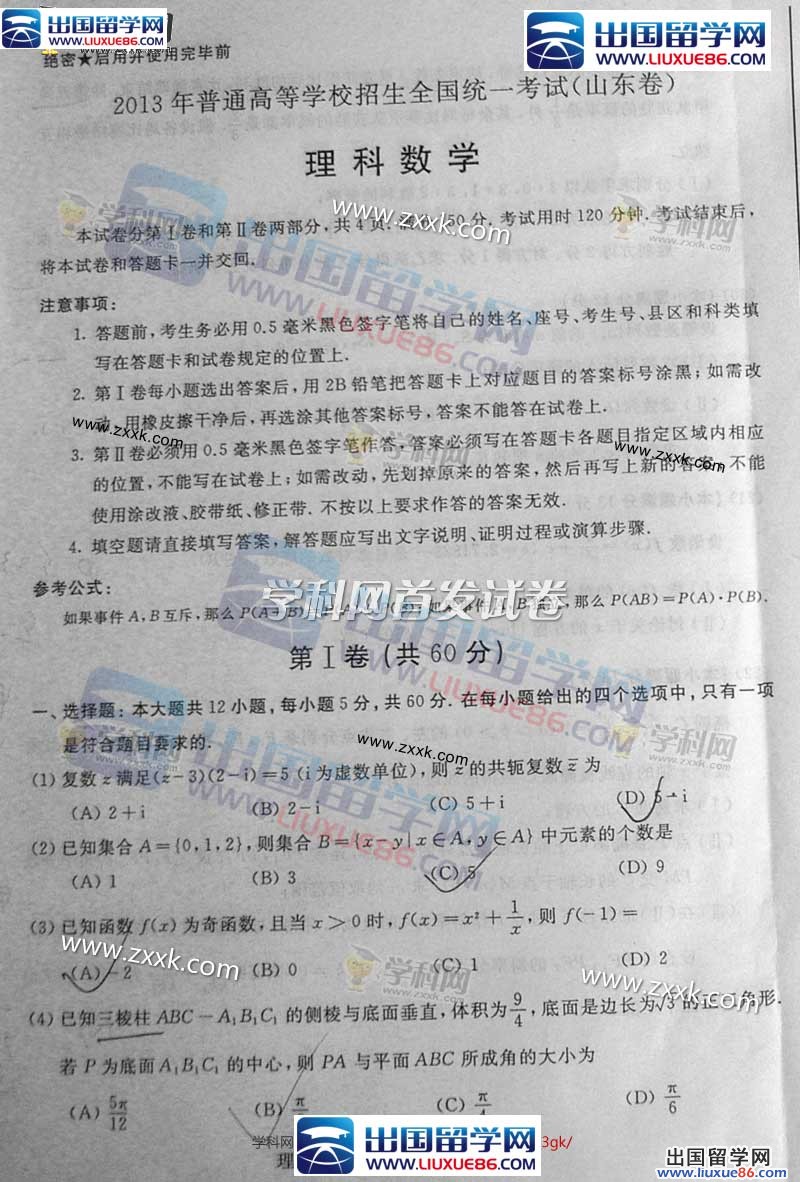 出国留学网
WWW.LIUXUE86.COM
出国留学网
www.liuxue86.com
绝密★启用并使用完毕前
2013年普通高等学校招生全国统一考试(山东卷)
理科数学
本试卷分第Ⅰ卷和第Ⅱ卷两部分,共4页.满分150分.考试用时120分钟.考试结束后,
将本试卷和答题卡一并交回.
注意事项:
1. 答题前,考生务必用0.5毫米黑色签字笔将自己的姓名、座号、考生号、县区和科类填
写在答题卡和试卷规定的位置上.
2. 第Ⅰ卷每小题选出答案后,用2B铅笔把答题卡上对应题目的答案标号涂黑;如需改
动,用橡皮擦干净后,再选涂其他答案标号,答案不能答在试卷上.
3. 第Ⅱ卷必须用0.5毫米黑色签字笔作答,答案必须写在答题卡各题目指定区域内相应
的位置,不能写在试卷上;如需改动,先划掉原来的答案,然后再写上新的答案,不能
使用涂改液、胶带纸、修正带.不按以上要求作答的答案无效.
4. 填空题请直接填写答案,解答题应写出文字说明、证明过程或演算步骤.
参考公式:
学科网首发试卷
如果事件A,B互斥,那么P(A+B) 那么P(AB)=P(A)·P(B).
第Ⅰ卷(共60分)
一、选择题:本大题共12小题,每小题5分,共60分.在每小题给出的四个选项中,只有一项
是符合题目要求的.
(1) 复数z满足(z-3)(2-i)=5 (i为虚数单位),则z的共轭复数z̅为
(A) 2+i (B) 2-i (C) 5+i (D) 5-i
(2) 已知集合A={0,1,2},则集合B={x-y|x∈A,y∈A}中元素的个数是
(A) 1 (B) 3 (C) 5 (D) 9
(3) 已知函数f(x)为奇函数,且当x>0时,f(x)=x²+1/x,则f(-1)=
(A) -2 (B) 0 (C) 1 (D) 2
(4) 已知三棱柱ABC-A₁B₁C₁的侧棱与底面垂直,体积为9/4,底面是边长为√3的正三角形.
若P为底面A₁B₁C₁的中心,则PA与平面ABC所成角的大小为
(A) 5π/12 (B) π (C) π (D) π/6
学科网
3gk/
理
出国留学网
WWW.LIUXUE86.COM
出国留学网
www.liuxue86.com
学科网
www.zxxk.com
学科网
zxxk.com
出国留学网
WWW.LIUXUE86.COM
www.zxxk.com
学科网
www.zxxk.com
出国留学网
WWW.LIUXUE86.COM
www.zxxk.com
学科网
zxxk.com
www.zxxk.com
学科网
zxxk.com
www.zxxk.com